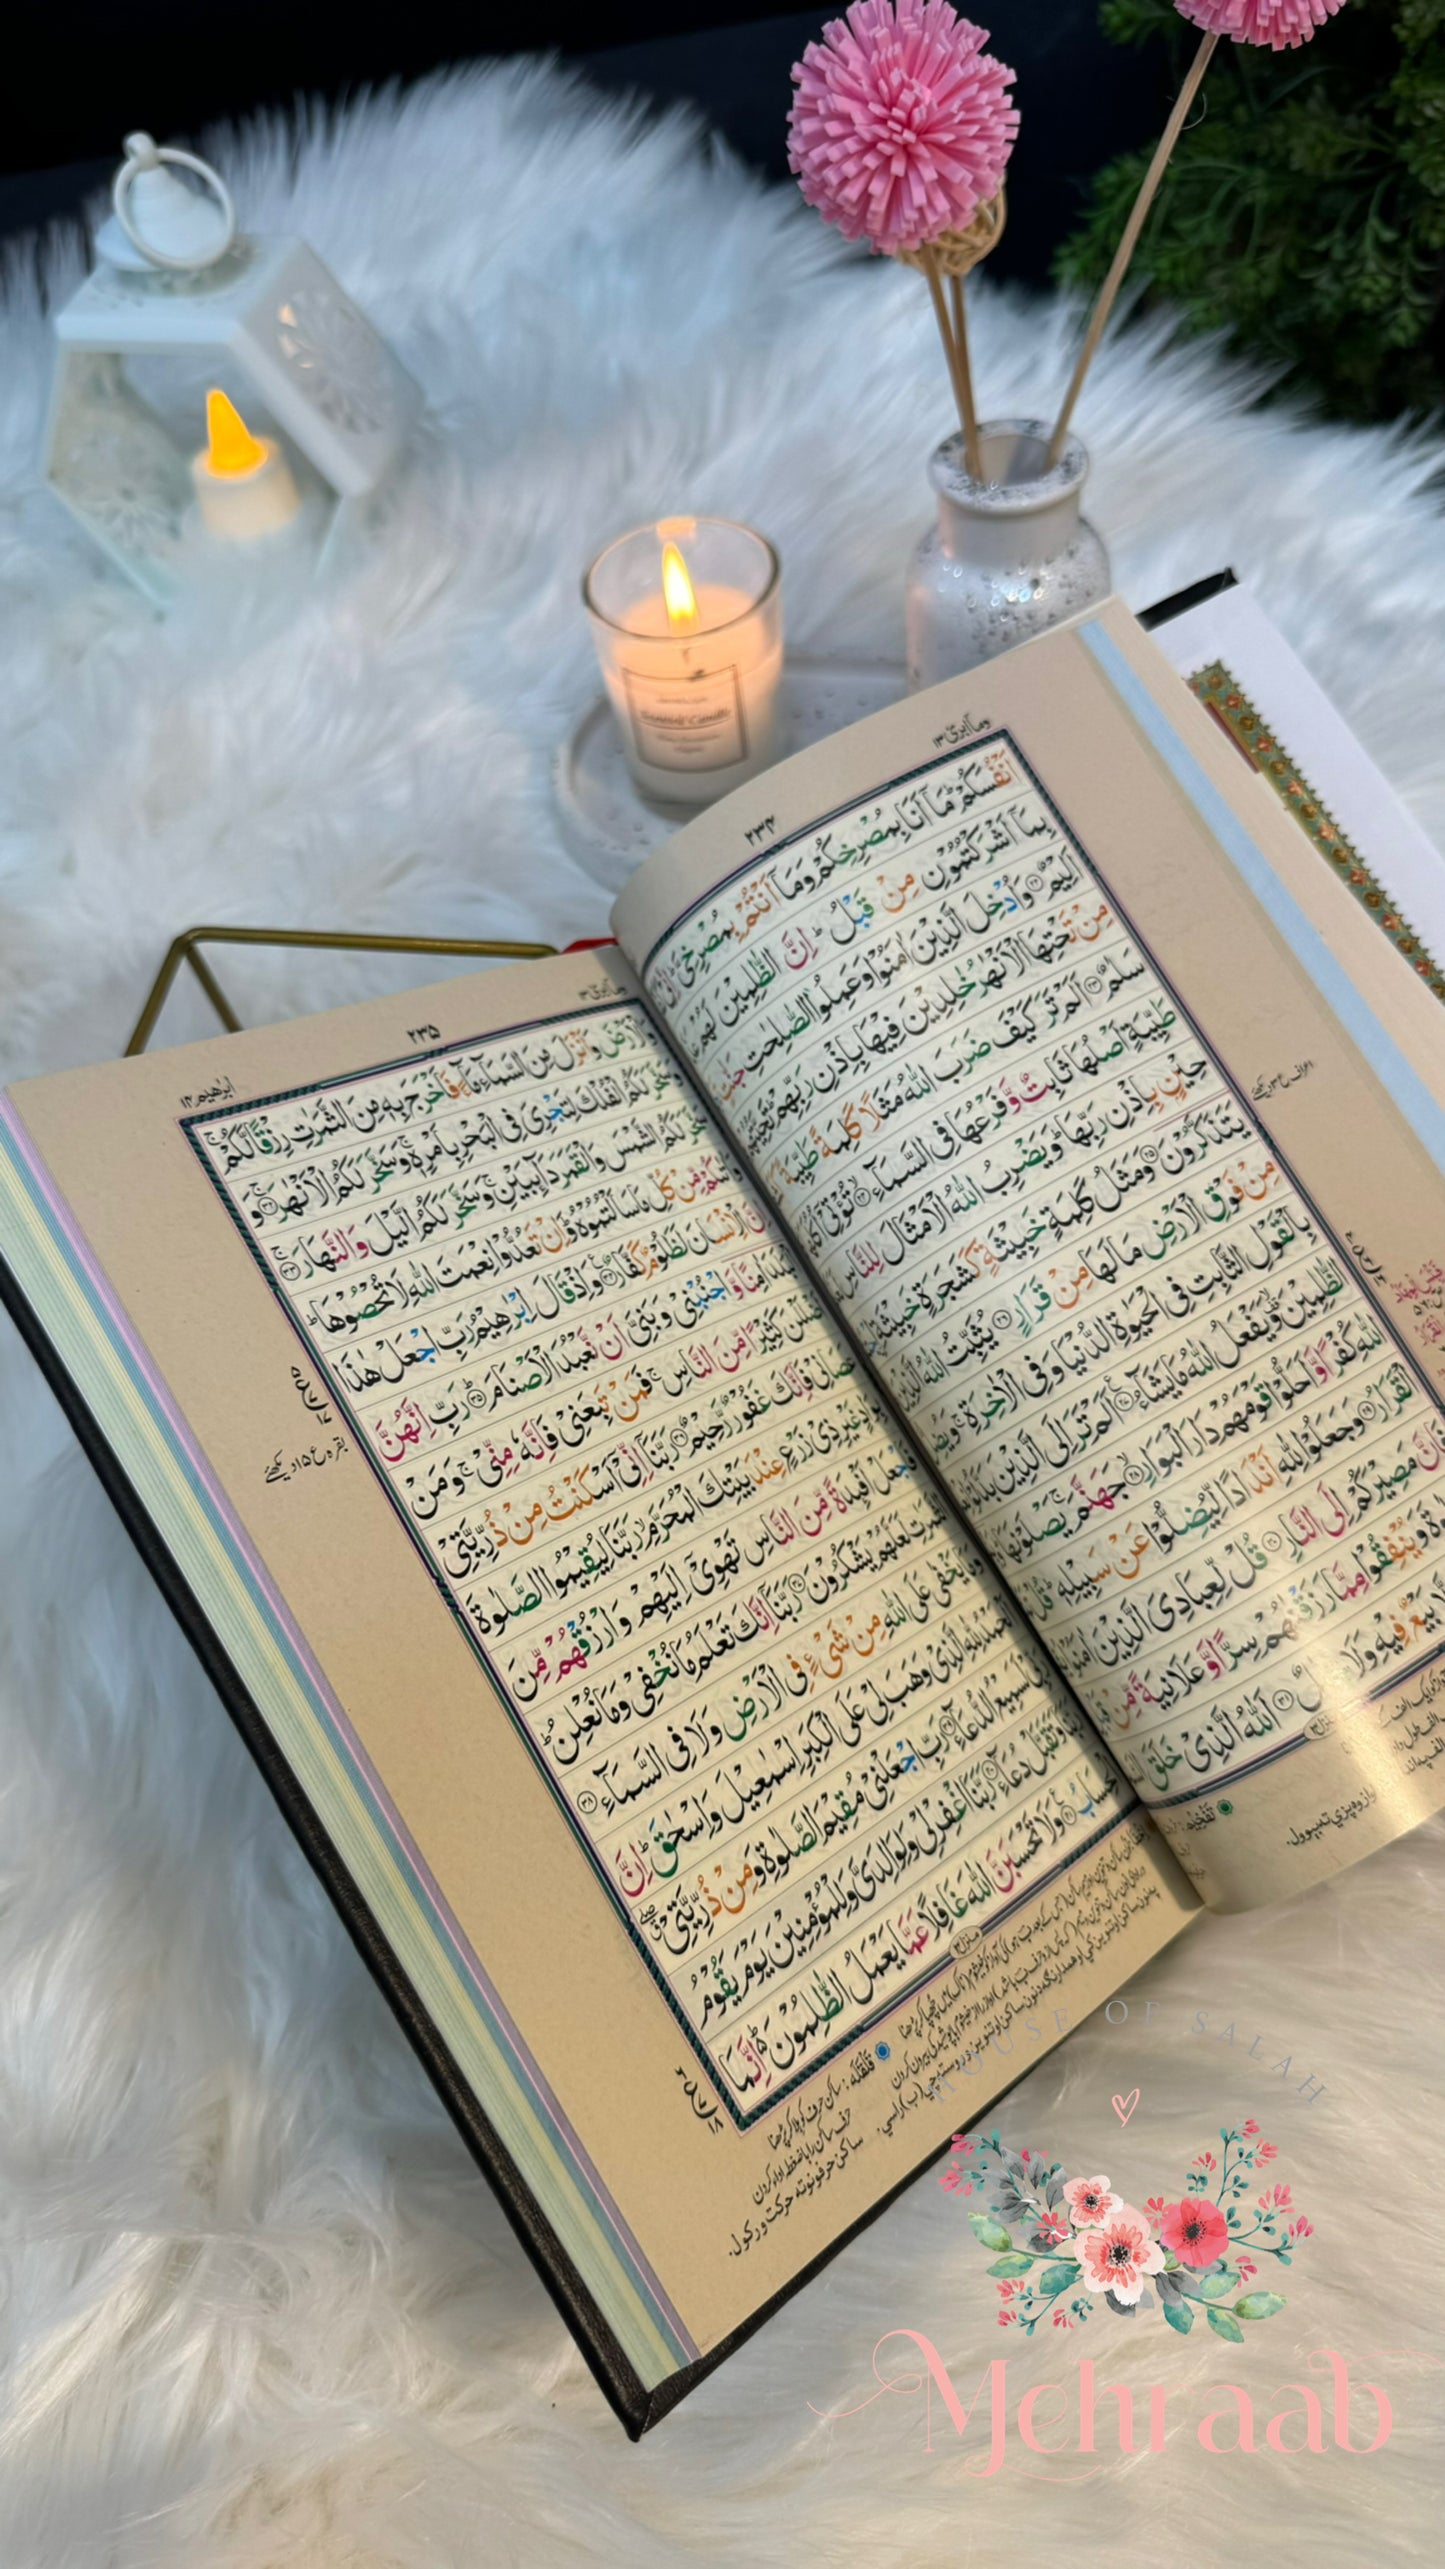 ومآ ابرئ ١٣
٢٣٤
اَنْفُسَكُمْ ؕ مَاۤ اَنَا بِمُصْرِخِكُمْ وَمَاۤ اَنْتُمْ بِمُصْرِخِيَّ ؕ
بِمَاۤ اَشْرَكْتُمُوْنِ مِنْ قَبْلُ ؕ اِنَّ الظّٰلِمِيْنَ لَهُمْ
اَلِيْمٌ ۲۲ وَاُدْخِلَ الَّذِيْنَ اٰمَنُوْا وَعَمِلُوا الصّٰلِحٰتِ جَنّٰتٍ
مِنْ تَحْتِهَا الْاَنْهٰرُ خٰلِدِيْنَ فِيْهَا بِاِذْنِ رَبِّهِمْ ؕ تَحِيَّتُهُمْ
سَلٰمٌ ۲۳ اَلَمْ تَرَ كَيْفَ ضَرَبَ اللّٰهُ مَثَلًا كَلِمَةً طَيِّبَةً
طَيِّبَةٍ اَصْلُهَا ثَابِتٌ وَّفَرْعُهَا فِي السَّمَآءِ ۲۴ تُؤْتِيْۤ اُكُلَهَا
حِيْنٍۭ بِاِذْنِ رَبِّهَا ؕ وَيَضْرِبُ اللّٰهُ الْاَمْثَالَ لِلنَّاسِ
يَتَذَكَّرُوْنَ ۲۵ وَمَثَلُ كَلِمَةٍ خَبِيْثَةٍ كَشَجَرَةٍ خَبِيْثَةِ
مِنْ فَوْقِ الْاَرْضِ مَا لَهَا مِنْ قَرَارٍ ۲۶ يُثَبِّتُ اللّٰهُ الَّذِيْنَ
بِالْقَوْلِ الثَّابِتِ فِي الْحَيٰوةِ الدُّنْيَا وَفِي الْاٰخِرَةِ ۚ
الظّٰلِمِيْنَ ۙ وَيَفْعَلُ اللّٰهُ مَا يَشَآءُ ۲۷ اَلَمْ تَرَ اِلَى الَّذِيْنَ بَدَّلُوْا
اللّٰهِ كُفْرًا وَّاَحَلُّوْا قَوْمَهُمْ دَارَ الْبَوَارِ ۲۸ جَهَنَّمَ ۚ يَصْلَوْنَهَا
الْقَرَارُ ۲۹ وَجَعَلُوْا لِلّٰهِ اَنْدَادًا لِّيُضِلُّوْا عَنْ سَبِيْلِهٖ ؕ قُلْ
فَاِنَّ مَصِيْرَكُمْ اِلَى النَّارِ ۳۰ قُلْ لِّعِبَادِيَ الَّذِيْنَ اٰمَنُوْا
وَيُنْفِقُوْا مِمَّا رَزَقْنٰهُمْ سِرًّا وَّعَلَانِيَةً مِّنْ
بَيْعٌ فِيْهِ وَلَا ۳۱ اَللّٰهُ الَّذِيْ خَلَقَ
منزل ٣
تَفْخِيْم
٢٣٥
ابرٰهيم ١٤
وَالْاَرْضَ وَاَنْزَلَ مِنَ السَّمَآءِ مَآءً فَاَخْرَجَ بِهٖ مِنَ الثَّمَرٰتِ رِزْقًا لَّكُمْ ۚ
وَسَخَّرَ لَكُمُ الْفُلْكَ لِتَجْرِيَ فِي الْبَحْرِ بِاَمْرِهٖ ۚ وَسَخَّرَ لَكُمُ الْاَنْهٰرَ ۳۲ وَ
سَخَّرَ لَكُمُ الشَّمْسَ وَالْقَمَرَ دَآىِٕبَيْنِ ۚ وَسَخَّرَ لَكُمُ الَّيْلَ وَالنَّهَارَ ۳۳
وَاٰتٰىكُمْ مِّنْ كُلِّ مَا سَاَلْتُمُوْهُ ؕ وَاِنْ تَعُدُّوْا نِعْمَتَ اللّٰهِ لَا تُحْصُوْهَا ؕ
اِنَّ الْاِنْسَانَ لَظَلُوْمٌ كَفَّارٌ ۳۴ وَاِذْ قَالَ اِبْرٰهِيْمُ رَبِّ اجْعَلْ هٰذَا
الْبَلَدَ اٰمِنًا وَّاجْنُبْنِيْ وَبَنِيَّ اَنْ نَّعْبُدَ الْاَصْنَامَ ۳۵ رَبِّ اِنَّهُنَّ
اَضْلَلْنَ كَثِيْرًا مِّنَ النَّاسِ ۚ فَمَنْ تَبِعَنِيْ فَاِنَّهٗ مِنِّيْ ۚ وَمَنْ
عَصَانِيْ فَاِنَّكَ غَفُوْرٌ رَّحِيْمٌ ۳۶ رَبَّنَاۤ اِنِّيْۤ اَسْكَنْتُ مِنْ ذُرِّيَّتِيْ
بِوَادٍ غَيْرِ ذِيْ زَرْعٍ عِنْدَ بَيْتِكَ الْمُحَرَّمِ ۙ رَبَّنَا لِيُقِيْمُوا الصَّلٰوةَ
فَاجْعَلْ اَفْـِٕدَةً مِّنَ النَّاسِ تَهْوِيْۤ اِلَيْهِمْ وَارْزُقْهُمْ مِّنَ
الثَّمَرٰتِ لَعَلَّهُمْ يَشْكُرُوْنَ ۳۷ رَبَّنَاۤ اِنَّكَ تَعْلَمُ مَا نُخْفِيْ وَمَا نُعْلِنُ ؕ
وَمَا يَخْفٰى عَلَى اللّٰهِ مِنْ شَيْءٍ فِي الْاَرْضِ وَلَا فِي السَّمَآءِ ۳۸
اَلْحَمْدُ لِلّٰهِ الَّذِيْ وَهَبَ لِيْ عَلَى الْكِبَرِ اِسْمٰعِيْلَ وَاِسْحٰقَ ؕ اِنَّ
رَبِّيْ لَسَمِيْعُ الدُّعَآءِ ۳۹ رَبِّ اجْعَلْنِيْ مُقِيْمَ الصَّلٰوةِ وَمِنْ ذُرِّيَّتِيْ
رَبَّنَا وَتَقَبَّلْ دُعَآءِ ۴۰ رَبَّنَا اغْفِرْ لِيْ وَلِوَالِدَيَّ وَلِلْمُؤْمِنِيْنَ يَوْمَ يَقُوْمُ
الْحِسَابُ ۴۱ وَلَا تَحْسَبَنَّ اللّٰهَ غَافِلًا عَمَّا يَعْمَلُ الظّٰلِمُوْنَ ؕ اِنَّمَا
منزل ٣
قَلْقَلَه : ساکن حرف کو ہلا کر پڑھنا
HOUSE OF SALAH
Mehraab